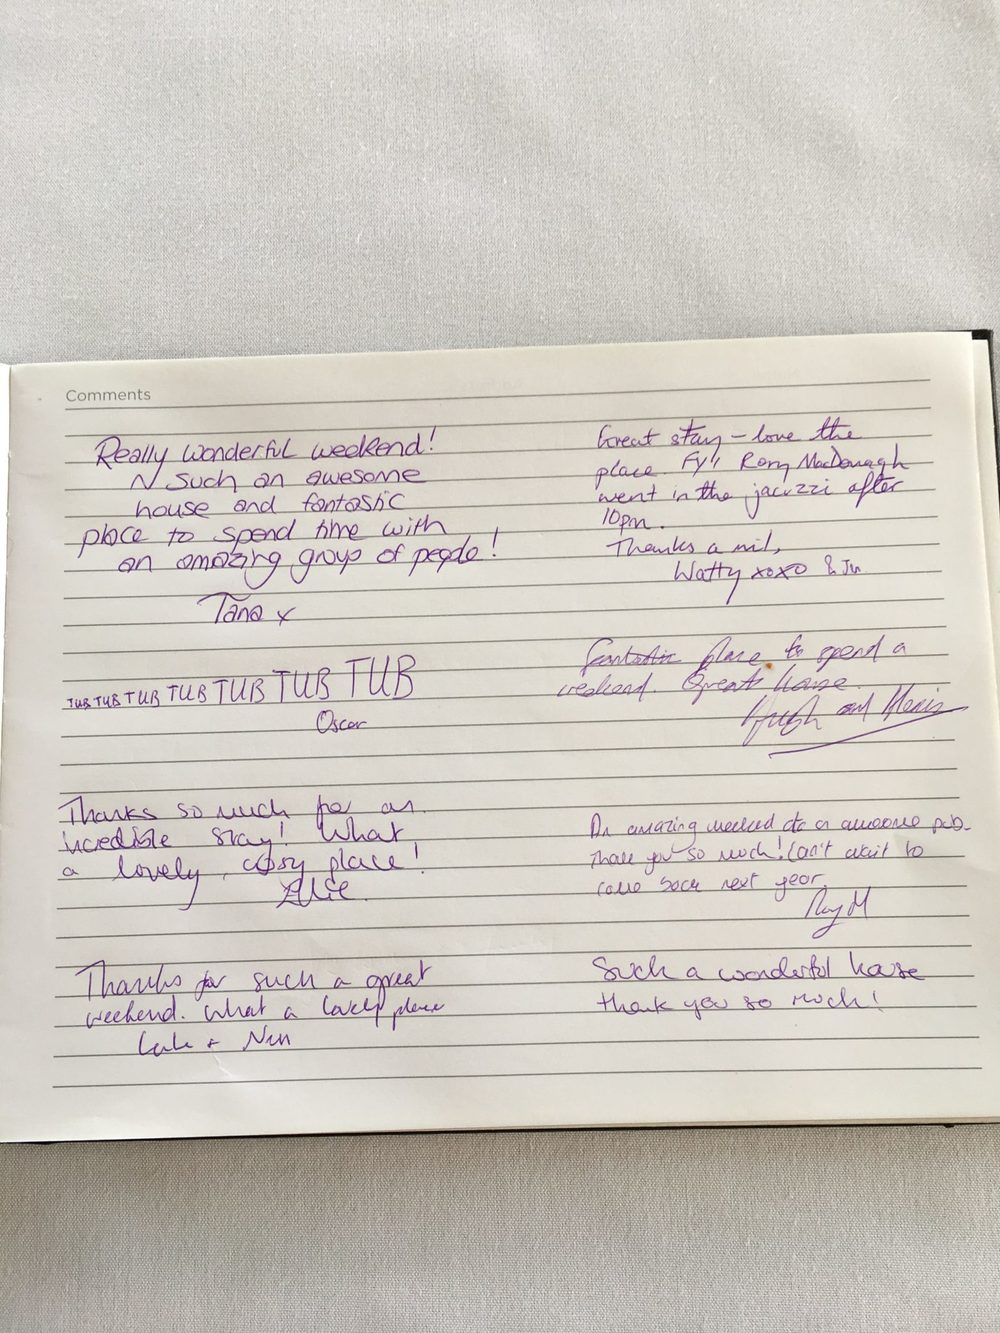 Comments
Really wonderful weekend!
~ such an awesome
house and fantastic
place to spend time with
an amazing group of people!
Tana x
TUB TUB TUB TUB TUB TUB TUB
Oscar
Thanks so much for an
incredible stay! What
a lovely, cosy place!
Alice
Thanks for such a great
weekend. What a lovely place
+
Great stay - love the
place. FYI Rory MacDonagh
went in the jacuzzi after
10pm.
Thanks a mil,
Watty xoxo &
Fantastic place to spend a
weekend. Great house.
Hugh and
An amazing weekend at an awesome
Thank you so much! Can't wait to
come back next year.
Such a wonderful house
thank you so much!